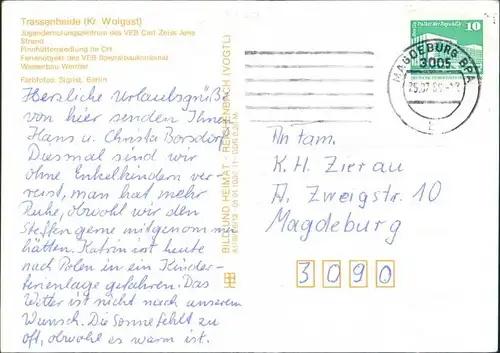 Trassenheide (Kr. Wolgast)
Jugenderholungszentrum des VEB Carl Zeiss Jena
Strand
Finnhüttensiedlung im Ort
Ferienobjekt des VEB Spezialbaukombinat
Wasserbau Weimar
Farbfotos: Sigrist, Berlin
Herzliche Urlaubsgrüße
von hier senden Ihnen
Hans u. Christa Borsdorf
Diesmal sind wir
ohne Enkelkindern ver-
reist, man hat mehr
Ruhe, obwohl wir den
Steffen gerne mitgenommen
hätten. Katrin ist heute
nach Polen in ein Kinder-
ferienlage gefahren. Das
Wetter ist nicht nach unserem
Wunsch. Die Sonne fehlt zu
oft, obwohl es warm ist.
BILD UND HEIMAT · REICHENBACH (VOGTL)
10
MAGDEBURG BPA
3005
25.07.
Fam.
K.H. Zierau
A. Zweigstr. 10
Magdeburg
3090